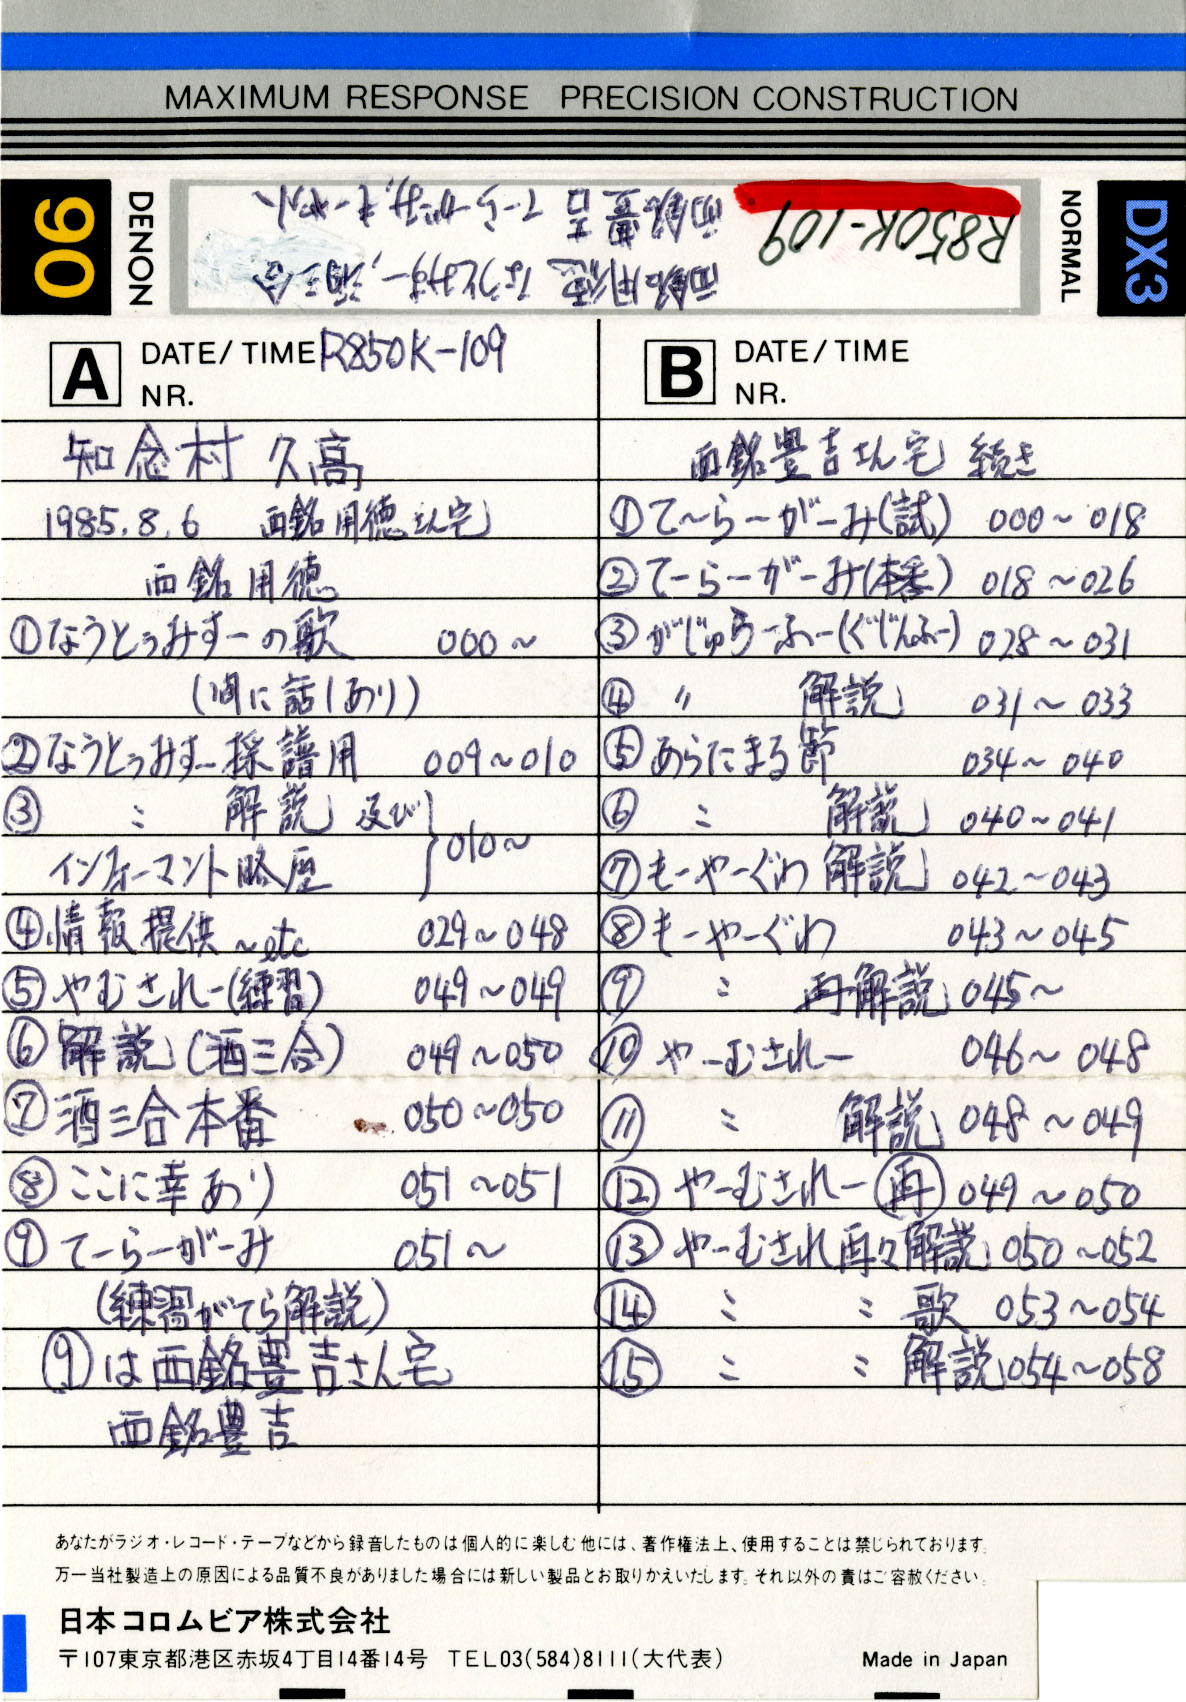 MAXIMUM RESPONSE PRECISION CONSTRUCTION
90
DENON
R850K-109
西銘用徳 なうとぅみすー, 酒三合
西銘豊吉 てーらーがーみ, もーやー
NORMAL
DX3
A DATE/TIME R850K-109
NR.
知念村 久高
1985.8.6 西銘用徳さん宅
西銘用徳
①なうとぅみすーの歌 000〜
(間に話しあり)
②なうとぅみすー採譜用 009〜010
③ 〃 解説 及び
インフォーマント略歴 010〜
④情報提供〜etc 029〜048
⑤やむされー(練習) 049〜049
⑥解説(酒三合) 049〜050
⑦酒三合本番 050〜050
⑧ここに幸あり 051〜051
⑨てーらーがーみ 051〜
(練習がてら解説)
⑨は西銘豊吉さん宅
西銘豊吉
B DATE/TIME
NR.
西銘豊吉さん宅 続き
①てーらーがーみ(試) 000〜018
②てーらーがーみ(本番) 018〜026
③がじゅうふー(ぐじんふー) 028〜031
④ 〃 解説 031〜033
⑤あらたまる節 034〜040
⑥ 〃 解説 040〜041
⑦もーやーぐわ 解説 042〜043
⑧もーやーぐわ 043〜045
⑨ 〃 再解説 045〜
⑩ やーむされー 046〜048
⑪ 〃 解説 048〜049
⑫ やーむされー(再) 049〜050
⑬ やーむされ再々解説 050〜052
⑭ 〃 〃 歌 053〜054
⑮ 〃 〃 解説 054〜058
あなたがラジオ・レコード・テープなどから録音したものは個人的に楽しむ他には、著作権法上、使用することは禁じられております。
万一当社製造上の原因による品質不良がありました場合には新しい製品とお取りかえいたします。それ以外の責はご容赦ください。
日本コロムビア株式会社
〒107東京都港区赤坂4丁目14番14号 TEL03(584)8111(大代表)
Made in Japan